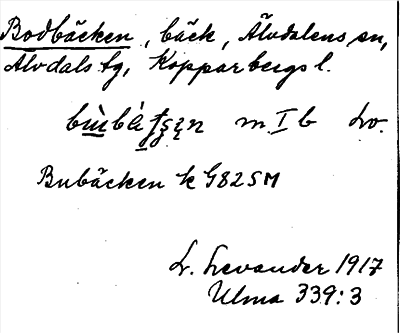 Bodbäcken, bäck, Älvdalens sn,
Älvdals tg, Kopparbergs l.
m I b Lo.
Bubäcken k G82SM
L. Levander 1917
Ulma 339:3